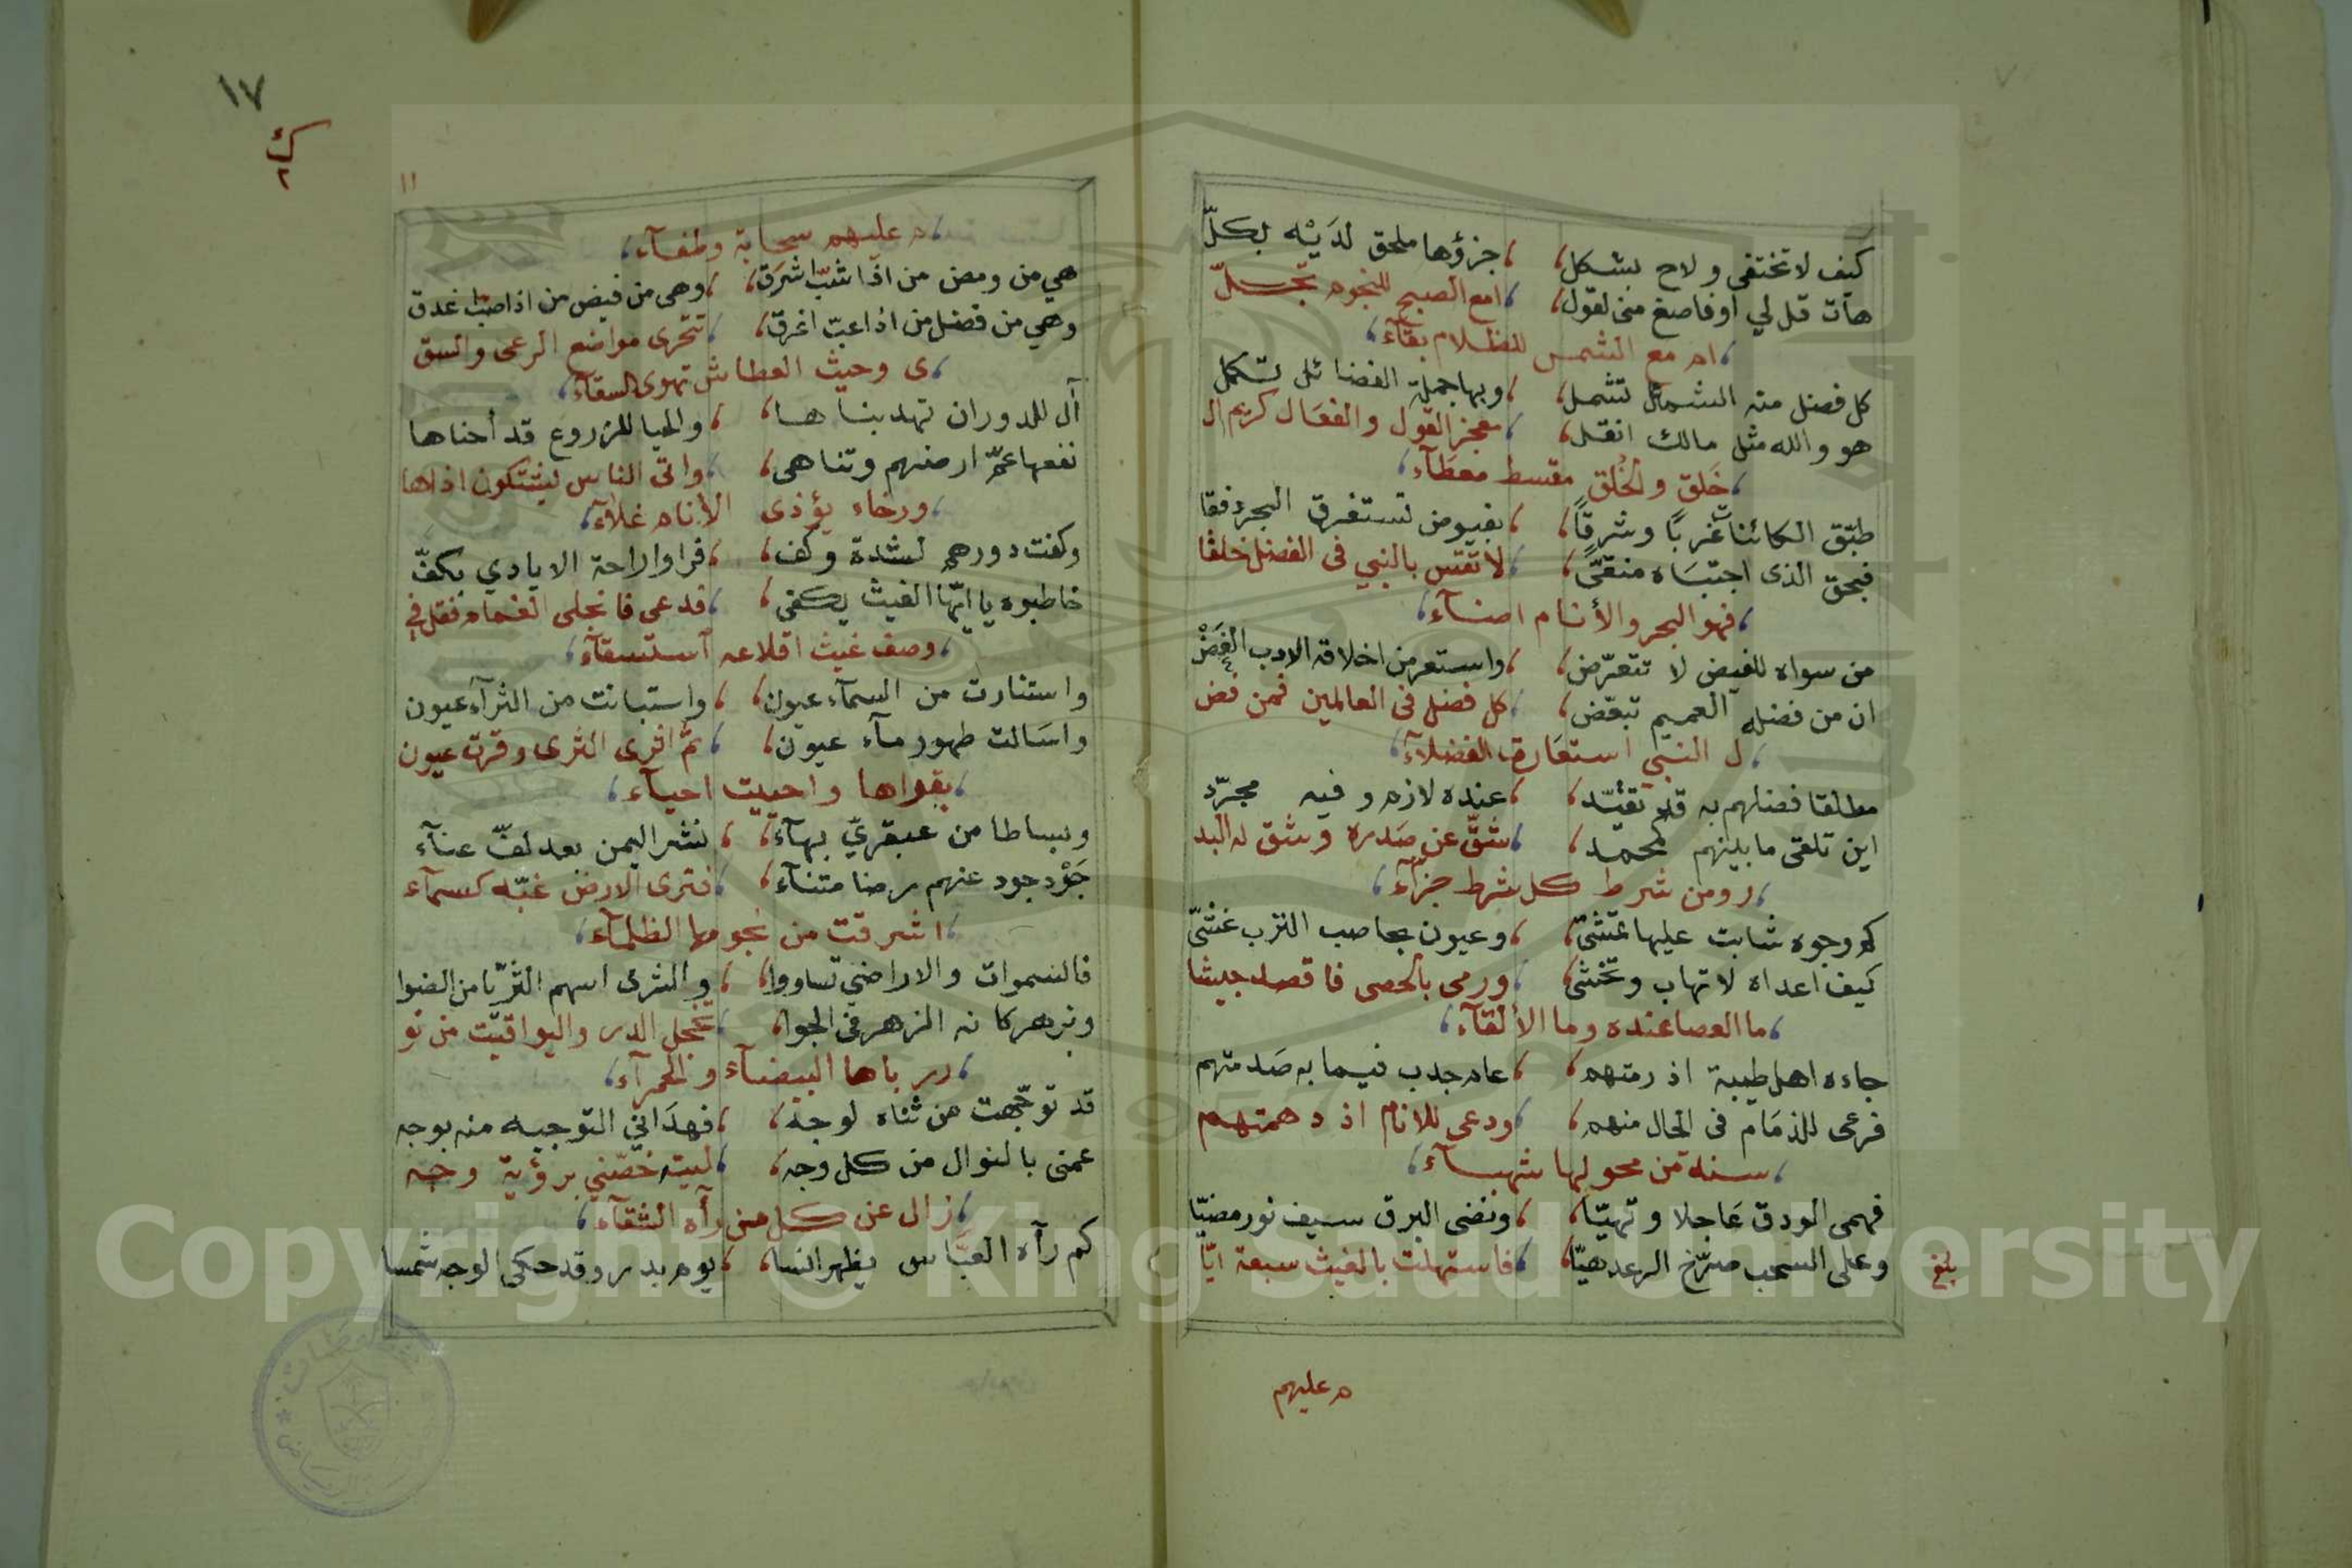 كيف لا تختفى ولاح بشكل، ، جزؤها ملحق لدَيْه بكلّ
هات قل لي اوفاصغ منى لقول، ، امع الصبح للنجوم تجلّ
، ام مع الشمس للظلام بقآء،
كل فضل منه الشمائل تشمل، ، وبها جملة الفضائل تكمل
هو والله مثل مالك انقل، ، معجز القول والفعَال كريم ال
، خَلق والخُلق مقسط معطآء،
طبّق الكائنات غربًا وشرقًا، ، بفيوض تستغرق البحر دفقا
فبحق الذى اجتبَاه منقىً، ، لا تقس بالنبي فى الفضل خلقا
، فهو البحر والأنام اضآء،
من سواه للفيض لا تتعرّض، ، واستعر من اخلاقه الادب الغَضْ
ان من فضله العميم تبعّض، ، كل فضل فى العالمين فمن فض
، ل النبي استعَارة الفضلآء،
مطلقا فضلهم به قد تقيّد، ، عنده لازم وفيه مجرّد
اين تلقى ما بينهم كمحمد، ، شقّ عن صَدره وشق له البد
، رومن شرط كل شرط جزآء،
كم وجوه شابت عليها تمشى، ، وعيون بحاصب الترب غشىّ
كيف اعداه لا تهاب وتخشى، ، ورمى بالحصى فاقصد جيشا
، ما العصا عنده وما الألقآء،
جاءه اهل طيبة اذ رمتهم، ، عام جدب فيما به صَدمتهم
فرعى للذمَام فى الحال منهم، ، ودعى للانام اذ دهمتهم
، سنة من محولها شهبآء،
فهمى الودق عَاجلا وتهيّا، ، ونضى البرق سيف نور مضيّا
وعلى السحب صرّخ الرعد هيّا، ، فاستهلت بالغيث سبعة ايّا
بلغ
م عليهم
١٧
١١
، م عليهم سحابة وطفآء،
هي من ومض من اذا شبّ اشرَق، ، وهى من فيض من اذا صبّ غدق
وهي من فضل من اذا عبّ اغرق، ، تتحرى مواضع الرعى والسق
، ى وحيث العطاش تهوى السقآء،
آل للدوران تهد بناها، ، والحيا للزروع قد أحناها
نفعها عمّ ارضهم وتناهى، ، واتى الناس يشتكون اذاها
، ورخاء يؤذى الأنام غلآء،
وكفت دورهم لشدة وكف، ، فراوا راحة الايادي بكفّ
خاطبوه يا ايّها الغيث يكفى، ، فدعى فانجلى الغمام فقل في
، وصف غيث اقلاعه استسقآء،
واستنارت من السمآء عيون، ، واستبانت من الثرآء عيون
واسَالت طهور مآء عيون، ، ثمّ اثرى الثرى وقرت عيون
، بقراها واحييت احيآء،
وبساطا من عبقريّ بهآء، ، نشر اليمن بعد لفّ عنآء
جَوْد جود عنهم رضا متنآء، ، فترى الارض غبّه كسمآء
، اشرقت من نجومها الظلمآء،
فالسموات والاراضي تساووا، ، والثرى اسهم الثريّا من الضوا
وبزهر كانه الزهر فى الجوا، ، تخجل الدر واليواقيت من نو
، رر باها البيضآء والحمرآء،
قد توجّهت من ثناه لوجه، ، فهدَانى التوجيه منه بوجه
عمنى بالنوال من كل وجه، ، ليته خصّني برؤية وجه
، زال عن كل من رأه الشقآء،
كم رآه العبّاس يظهر انسا، ، يوم بدر وقد حكى الوجه شمسا
Copyright © King Saud University